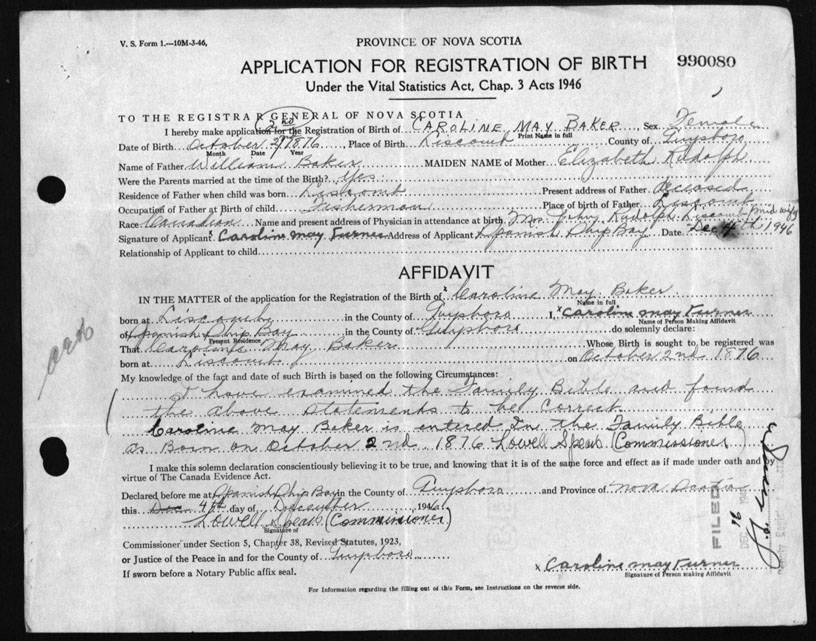 V. S. Form 1.—10M-3-46,
PROVINCE OF NOVA SCOTIA
APPLICATION FOR REGISTRATION OF BIRTH 990080
Under the Vital Statistics Act, Chap. 3 Acts 1946
TO THE REGISTRAR GENERAL OF NOVA SCOTIA
I hereby make application for the Registration of Birth of CAROLINE MAY BAKER Sex Female
Print Name in full
Date of Birth October 2nd 1876, Place of Birth Liscomb County of Guysboro
Month Date Year
Name of Father William Baker MAIDEN NAME of Mother Elizabeth Rudolph
Were the Parents married at time of the Birth? Yes
Residence of Father when child was born Liscomb Present address of Father Deceased
Occupation of Father at Birth of child Fisherman Place of birth of Father Liscomb
Race Canadian Name and present address of Physician in attendance at birth Mrs. Rudolph Liscomb midwife
Signature of Applicant x Caroline May Turner Address of Applicant Spanish Ship Bay Date Dec 4th 1946
Relationship of Applicant to child
AFFIDAVIT
IN THE MATTER of the application for the Registration of the Birth of x Caroline May Baker
Name in full
born at Liscomb in the County of Guysboro I, x Caroline May Turner
Name of Person Making Affidavit
of Spanish Ship Bay in the County of Guysboro do solemnly declare:
Present Residence
That Caroline May Baker Whose Birth is sought to be registered was
born at Liscomb on October 2nd 1876
My knowledge of the fact and date of such Birth is based on the following Circumstances:
I have examined the Family Bible and found
the above statements to be Correct
Caroline May Baker is entered in the Family Bible
as Born on October 2nd 1876 Lowell Spears (Commissioner)
I make this solemn declaration conscientiously believing it to be true, and knowing that it is of the same force and effect as if made under oath and by
virtue of The Canada Evidence Act.
Declared before me at Spanish Ship Bay in the County of Guysboro and Province of Nova Scotia
this Dec 4th day of December 1946
Lowell Spears (Commissioner)
Signature of
Commissioner under Section 5, Chapter 38, Revised Statutes, 1923,
or Justice of the Peace in and for the County of Guysboro
If sworn before a Notary Public affix seal.
x Caroline May Turner
Signature of Person making Affidavit
For Information regarding the filling out of this Form, see Instructions on the reverse side.
FILED
DEC 16